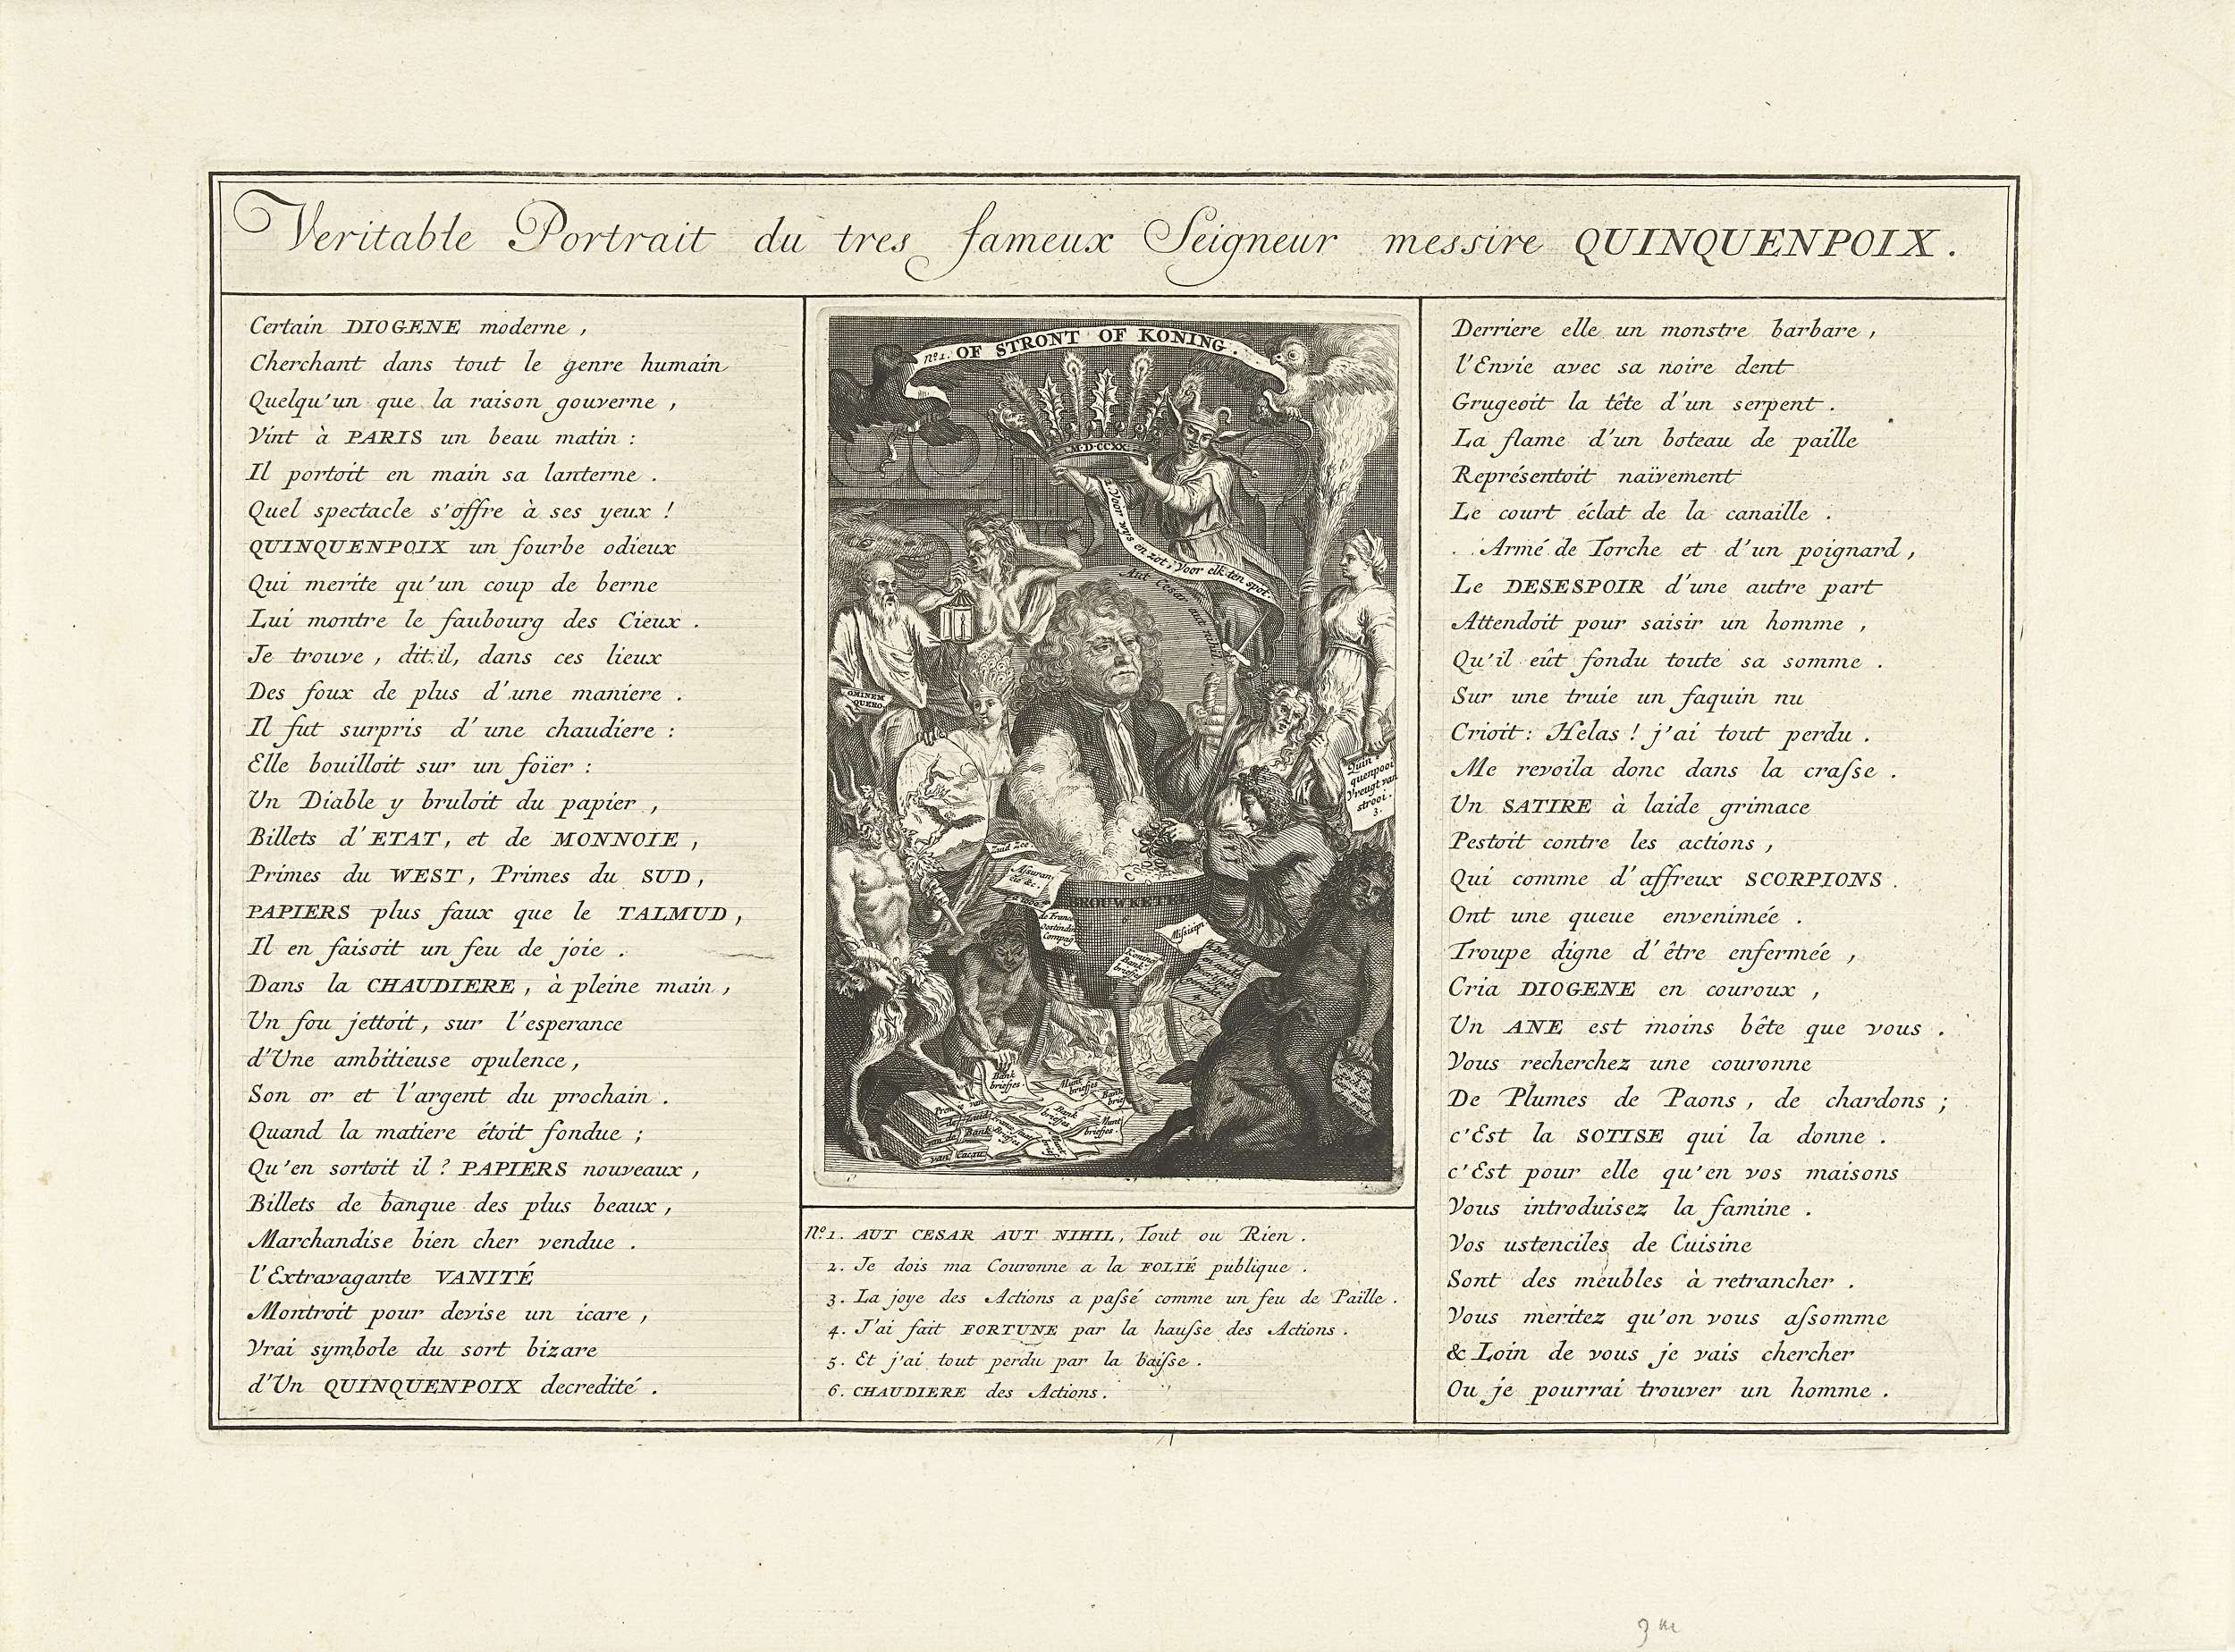 Veritable Portrait du tres fameux Seigneur messire QUINQUENPOIX.
Certain DIOGENE moderne,
Cherchant dans tout le genre humain
Quelqu'un que la raison gouverne,
Vint à PARIS un beau matin:
Il portoit en main sa lanterne.
Quel spectacle s'offre à ses yeux!
QUINQUENPOIX un fourbe odieux
Qui merite qu'un coup de berne
Lui montre le faubourg des Cieux.
Je trouve, dit.il, dans ces lieux
Des foux de plus d'une maniere.
Il fut surpris d'une chaudiere:
Elle bouilloit sur un foïer:
Un Diable y bruloit du papier,
Billets d'ETAT, et de MONNOIE,
Primes du WEST, Primes du SUD,
PAPIERS plus faux que le TALMUD,
Il en faisoit un feu de joie.
Dans la CHAUDIERE, à pleine main,
Un fou jettoit, sur l'esperance
d'Une ambitieuse opulence,
Son or et l'argent du prochain.
Quand la matiere étoit fondue;
Qu'en sortoit il? PAPIERS nouveaux,
Billets de banque des plus beaux,
Marchandise bien cher vendue.
l'Extravagante VANITÉ
Montroit pour devise un icare,
Vrai symbole du sort bizare
d'Un QUINQUENPOIX decredité.
nº1. OF STRONT OF KONING.
M·D·CCXX.
2. Voor wys en zot, Voor elk ten spot.
Aut Cesar aut nihil.
OMINEM
QUERO.
Quin
quenpooi
Vreugt van
strooi.
3.
Zuid Zee
Assuran
cie &c.
de France
Oostindis
Compag
BROUWKETEL
6
Missisipi
Bank
briefjes.
Munt
briefjes
Bank
briefjes
Munt
briefjes.
van Cacau
Nº1. AUT CESAR AUT NIHIL, Tout ou Rien.
2. Je dois ma Couronne a la FOLIÉ publique.
3. La joye des Actions a passé comme un feu de Paille.
4. J'ai fait FORTUNE par la hausse des Actions.
5. Et j'ai tout perdu par la baisse.
6. CHAUDIERE des Actions.
Derriere elle un monstre barbare,
l'Envie avec sa noire dent
Grugeoit la tête d'un serpent.
La flame d'un boteau de paille
Représentoit naïvement
Le court éclat de la canaille.
Armé de Torche et d'un poignard,
Le DESESPOIR d'une autre part
Attendoit pour saisir un homme,
Qu'il eût fondu toute sa somme.
Sur une truie un faquin nu
Crioit: Helas! j'ai tout perdu.
Me revoila donc dans la crasse.
Un SATIRE à laide grimace
Pestoit contre les actions,
Qui comme d'affreux SCORPIONS.
Ont une queue envenimée.
Troupe digne d'être enfermée,
Cria DIOGENE en couroux,
Un ANE est moins bête que vous.
Vous recherchez une couronne
De Plumes de Paons, de chardons;
c'Est la SOTISE qui la donne.
c'Est pour elle qu'en vos maisons
Vous introduisez la famine.
Vos ustenciles de Cuisine
Sont des meubles à retrancher.
Vous meritez qu'on vous assomme
& Loin de vous je vais chercher
Ou je pourrai trouver un homme.